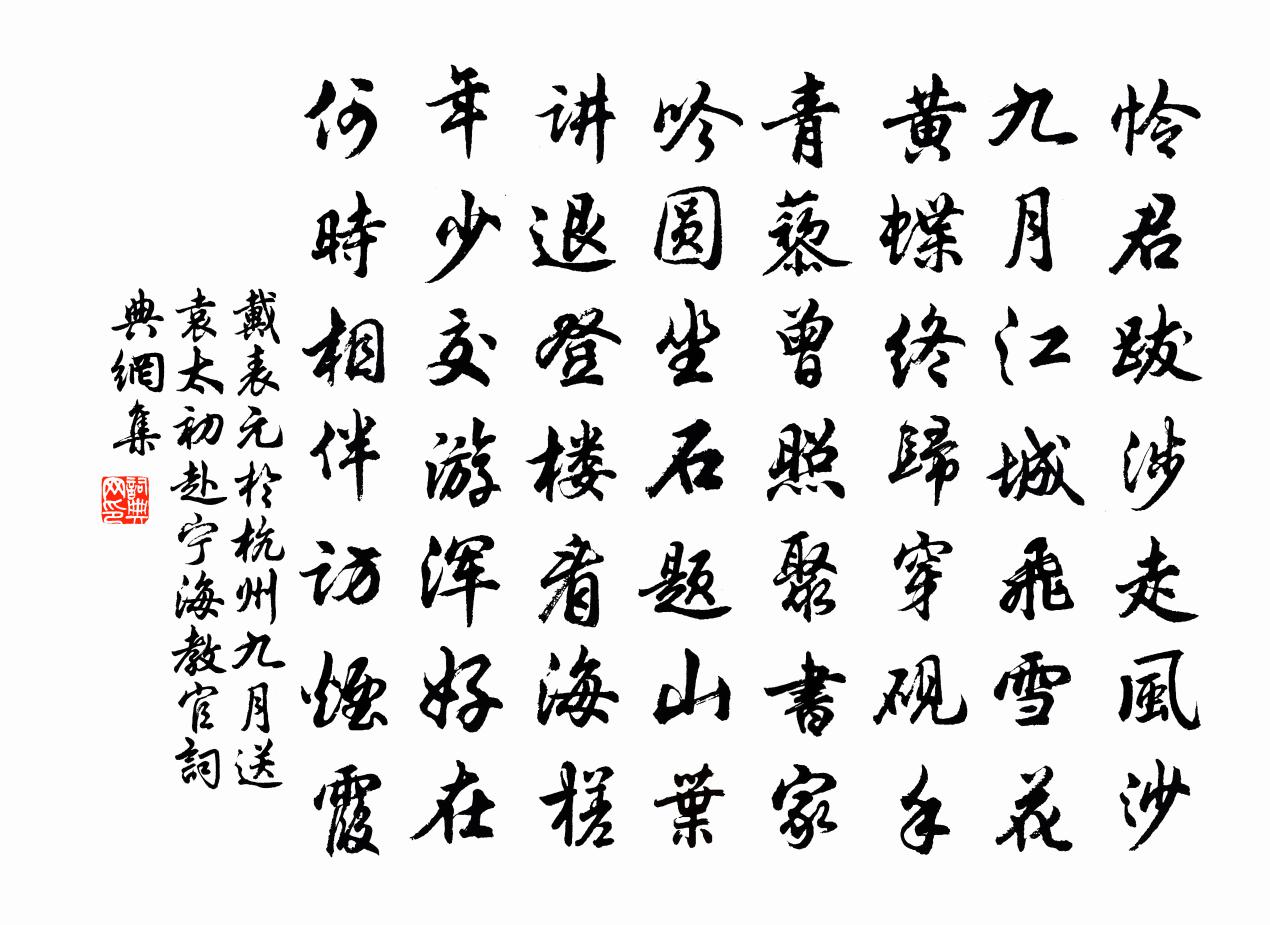 怜君跋涉走風沙
九月江城飛雪花
黄蝶終歸穿硯手
青藜曾照聚書家
吟圆坐石题山葉
讲退登楼看海槎
年少交游浑好在
何時相伴访煙霞
戴表元於杭州九月送
袁太初赴宁海教官詞
典網集
詞典网印